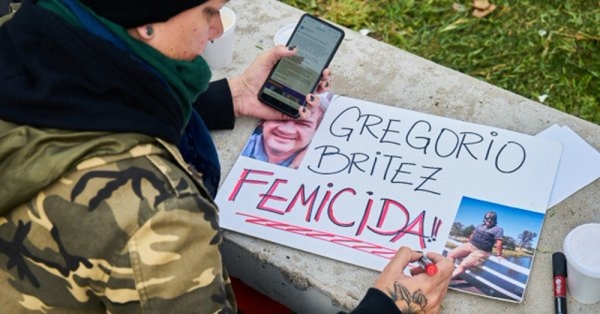 GREGORIO
BRITEZ
FEMICIDA!!